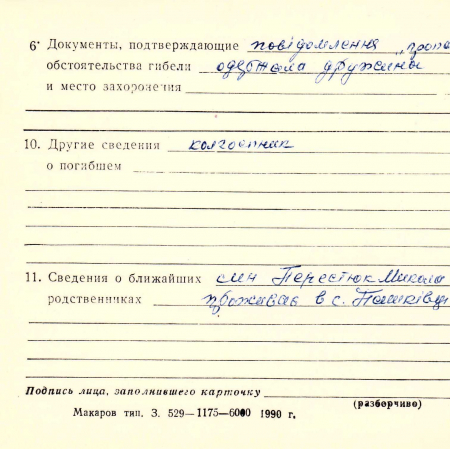 6· Документы, подтверждающие повідомлення „пропа
обстоятельства гибели одержала дружина
и место захоронения
10. Другие сведения колгоспник
о погибшем
11. Сведения о ближайших син Перестюк Микола
родственниках проживає в с. Пашківці
Подпись лица, заполнившего карточку
(разборчиво)
Макаров тип. З. 529—1175—6000 1990 г.